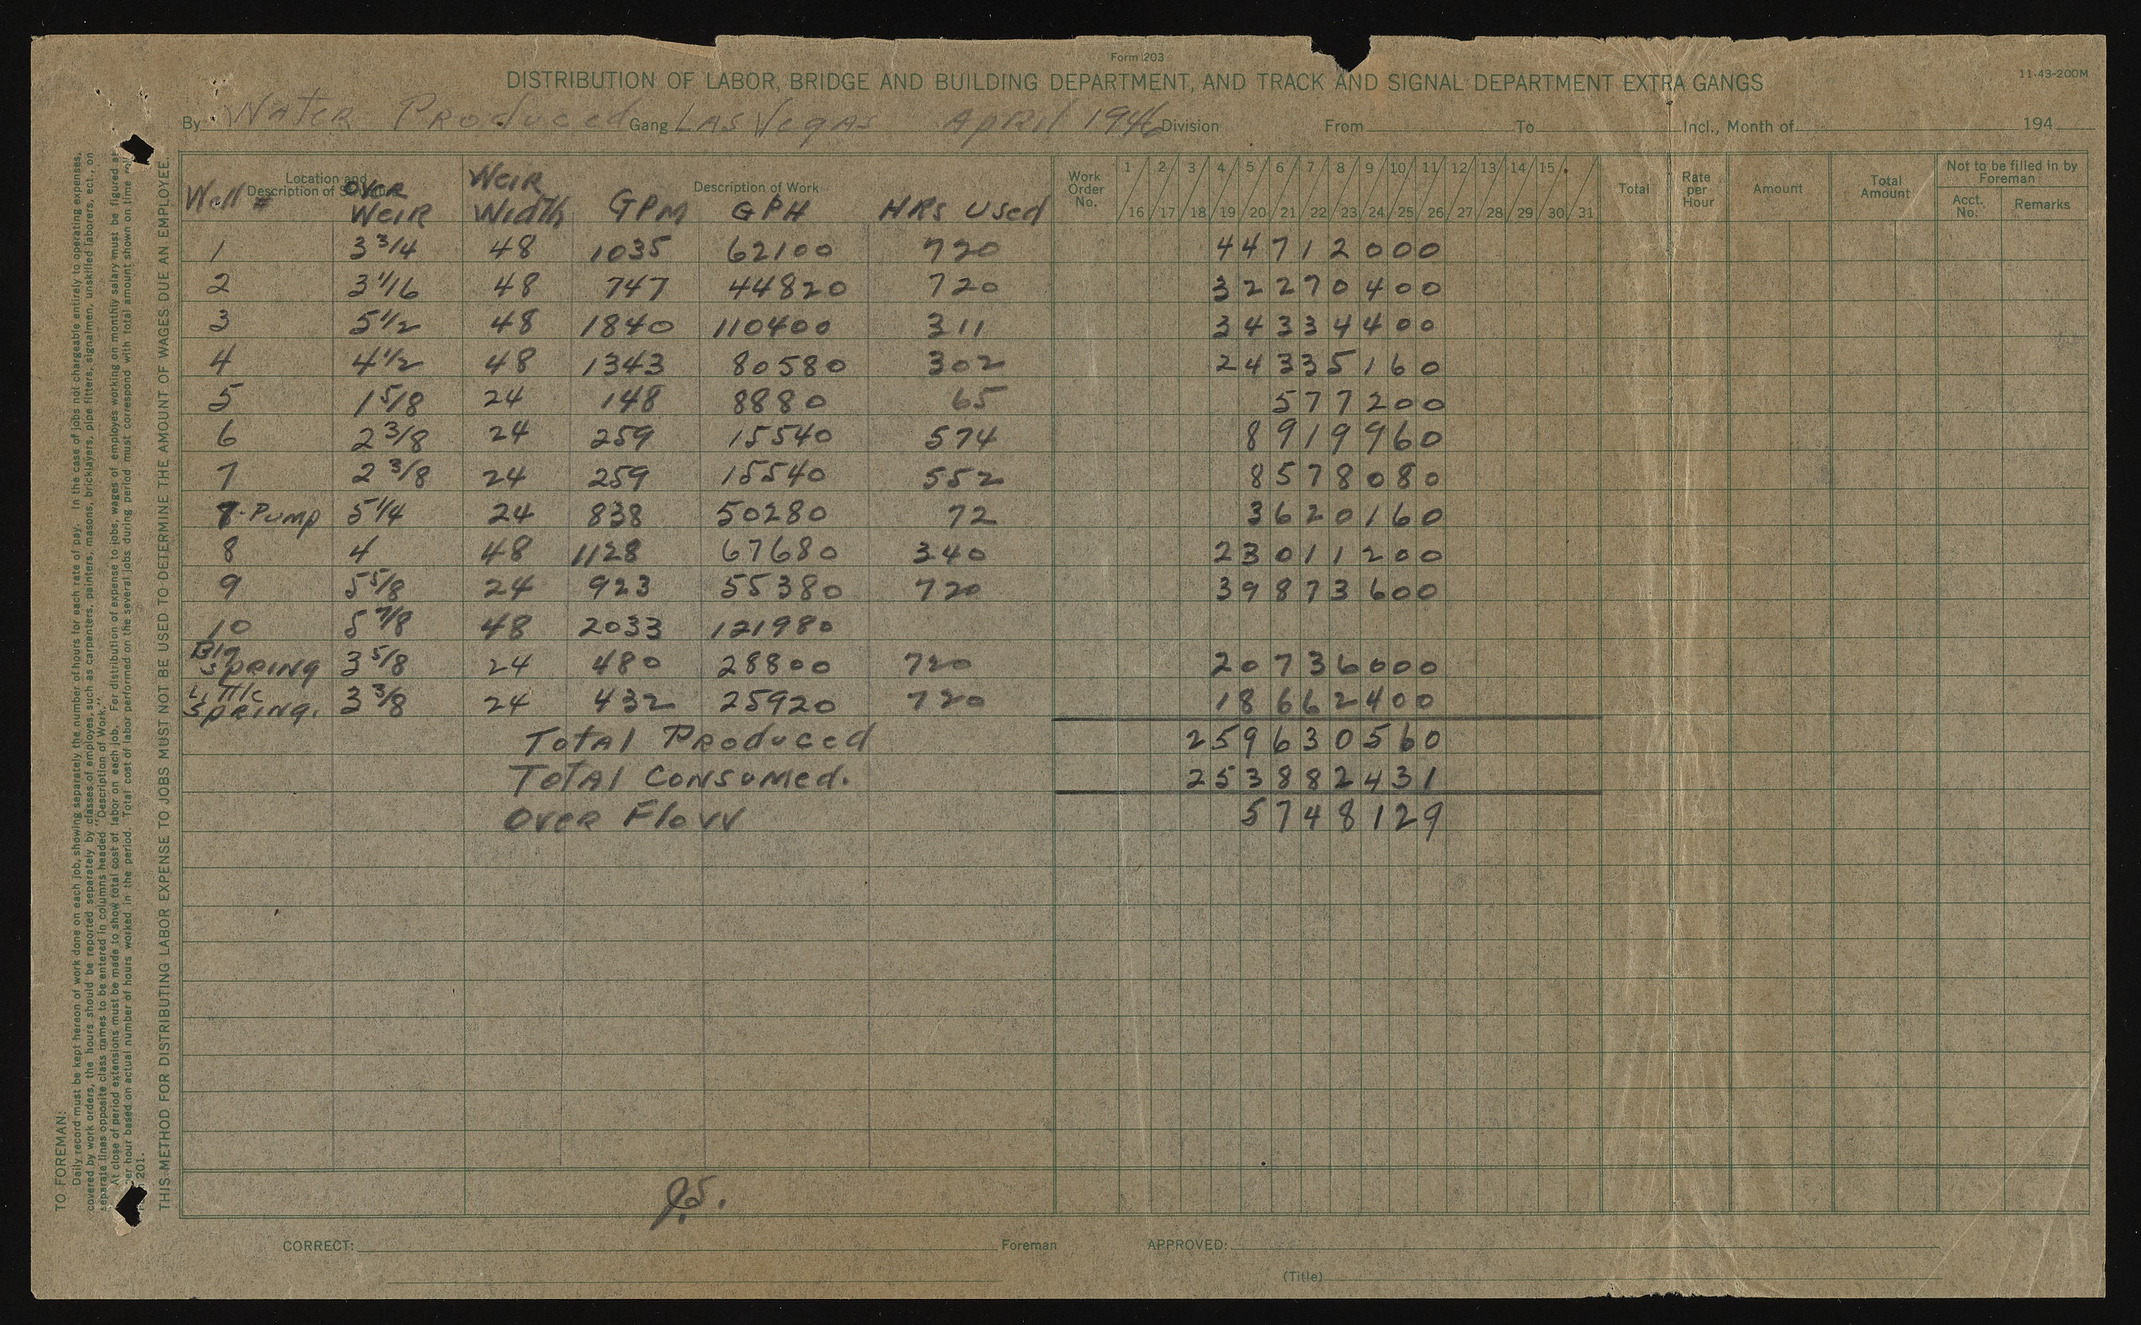 Form 203
DISTRIBUTION OF LABOR, BRIDGE AND BUILDING DEPARTMENT, AND TRACK AND SIGNAL DEPARTMENT EXTRA GANGS
11-43-200M
By Water Produced Gang Las Vegas April 1946 Division From To Incl., Month of 194
Location and Description of Well # Over Weir Weir Width Description of Work GPM GPH HRs Used Work Order No. 1 2 3 4 5 6 7 8 9 10 11 12 13 14 15 Total Rate per Hour Amount Total Amount Not to be filled in by Foreman
16 17 18 19 20 21 22 23 24 25 26 27 28 29 30 31 Acct. No. Remarks
1 3 3/4 48 1035 62100 720 44712000
2 3 1/16 48 747 44820 720 32270400
3 5 1/2 48 1840 110400 311 34334400
4 4 1/2 48 1343 80580 302 24335160
5 1 5/8 24 148 8880 65 577200
6 2 3/8 24 259 15540 574 8919960
7 2 3/8 24 259 15540 552 8578080
7-Pump 5 1/4 24 838 50280 72 3620160
8 4 48 1128 67680 340 23011200
9 5 5/8 24 923 55380 720 39873600
10 5 7/8 48 2033 121980
Big Spring 3 5/8 24 480 28800 720 20736000
Little Spring. 3 3/8 24 432 25920 720 18662400
Total Produced 259630560
Total Consumed. 253882431
Over Flow 5748129
J.S.
CORRECT: Foreman APPROVED:
(Title)
TO FOREMAN:
Daily record must be kept hereon of work done on each job, showing separately the number of hours for each rate of pay. In the case of jobs not chargeable entirely to operating expenses,
covered by work orders, the hours should be reported separately by classes of employes, such as carpenters, painters, masons, bricklayers, pipe fitters, signalmen, unskilled laborers, ect., on
separate linas opposite class names to be entered in columns headed "Description of Work."
At close of period extensions must be made to show total cost of labor on each job. For distribution of expense to jobs, wages of employes working on monthly salary must be figured at
per hour based on actual number of hours worked in the period. Total cost of labor performed on the several jobs during period must correspond with total amount shown on time roll
201.
THIS METHOD FOR DISTRIBUTING LABOR EXPENSE TO JOBS MUST NOT BE USED TO DETERMINE THE AMOUNT OF WAGES DUE AN EMPLOYEE.